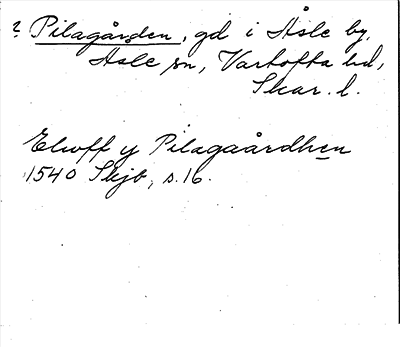 ? Pilagården, gd i Åsle by,
Åsle sn, Vartofta hd,
Skar. l.
Elwff y Pilagaårdhen
1540 Skjb, s. 16.